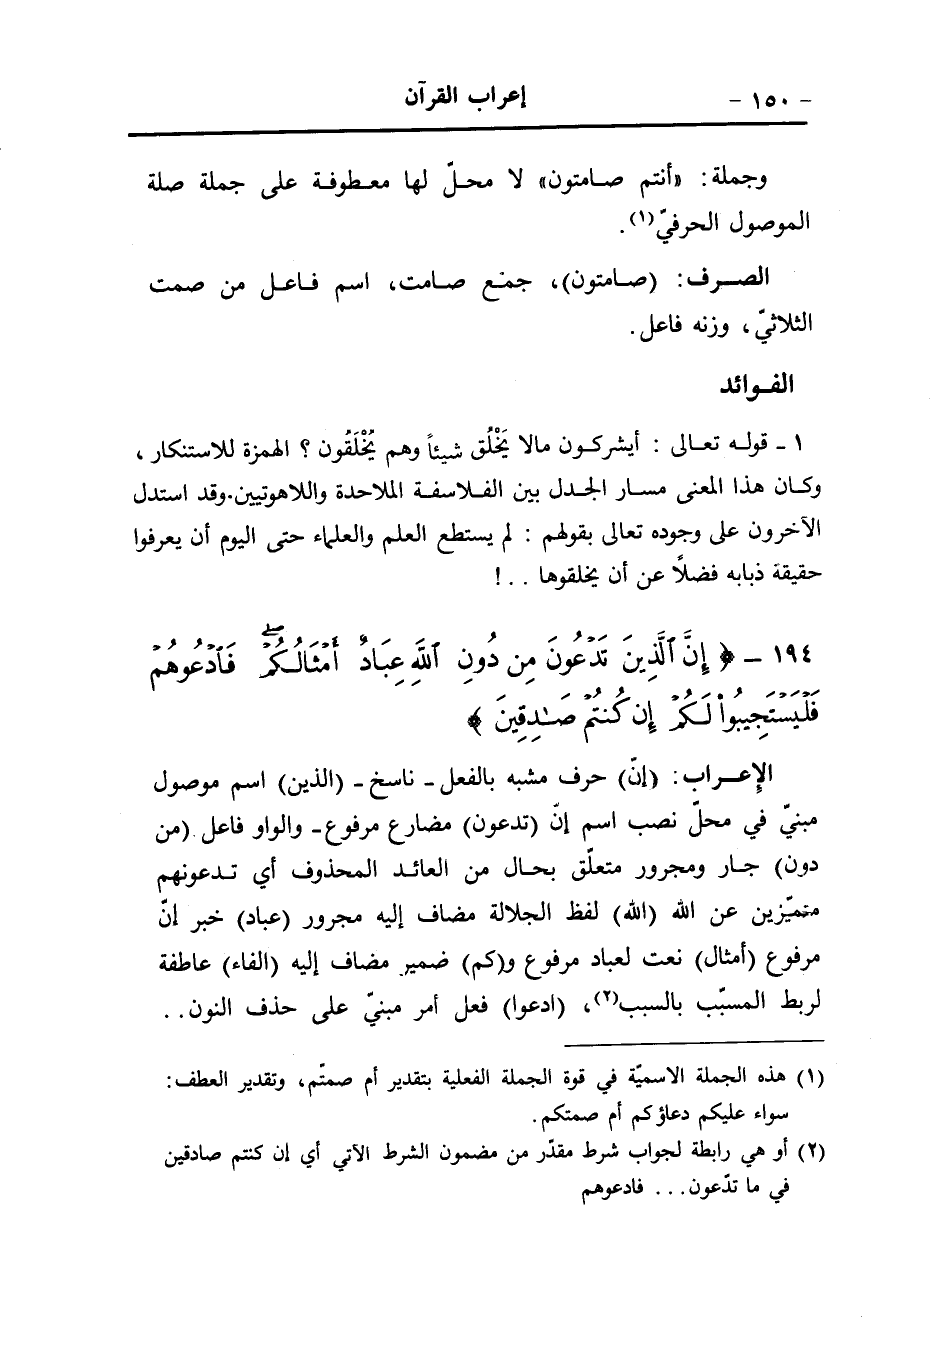 - ١٥٠ - إعراب القرآن
وجملة: «أنتم صامتون» لا محلّ لها معطوفة على جملة صلة
الموصول الحرفيّ(١).
الصرف: (صامتون)، جمع صامت، اسم فاعل من صمت
الثلاثيّ، وزنه فاعل.
الفوائد
١ - قوله تعالى : أيشركون مالا يَخْلُق شيئاً وهم يُخْلَقُون ؟ الهمزة للاستنكار ،
وكان هذا المعنى مسار الجدل بين الفلاسفة الملاحدة واللاهوتيين. وقد استدل
الآخرون على وجوده تعالى بقولهم : لم يستطع العلم والعلماء حتى اليوم أن يعرفوا
حقيقة ذبابه فضلاً عن أن يخلقوها . . !
١٩٤ - ﴿ إِنَّ ٱلَّذِينَ تَدْعُونَ مِن دُونِ ٱللَّهِ عِبَادٌ أَمْثَالُكُمْ ۖ فَٱدْعُوهُمْ
فَلْيَسْتَجِيبُواْ لَكُمْ إِن كُنتُمْ صَـٰدِقِينَ ﴾
الإعراب: (إنّ) حرف مشبه بالفعل - ناسخ - (الذين) اسم موصول
مبنيّ في محلّ نصب اسم إنّ (تدعون) مضارع مرفوع - والواو فاعل (من
دون) جار ومجرور متعلّق بحال من العائد المحذوف أي تدعونهم
متميّزين عن الله (الله) لفظ الجلالة مضاف إليه مجرور (عباد) خبر إنّ
مرفوع (أمثال) نعت لعباد مرفوع و(كم) ضمير مضاف إليه (الفاء) عاطفة
لربط المسبّب بالسبب(٢)، (ادعوا) فعل أمر مبنيّ على حذف النون . .
(١) هذه الجملة الاسميّة في قوة الجملة الفعلية بتقدير أم صمتّم، وتقدير العطف:
سواء عليكم دعاؤكم أم صمتكم.
(٢) أو هي رابطة لجواب شرط مقدّر من مضمون الشرط الآتي أي إن كنتم صادقين
في ما تدّعون . . . فادعوهم